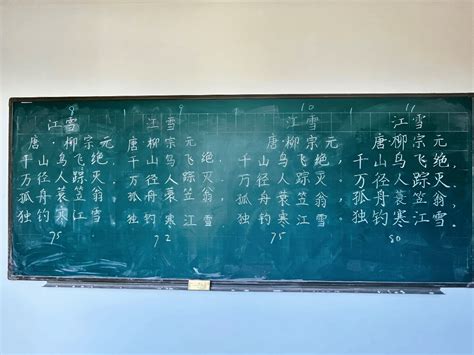 9
江雪
唐·柳宗元
千山鸟飞绝,
万径人踪灭.
孤舟蓑笠翁,
独钓寒江雪
75
9
江雪
唐·柳宗元
千山鸟飞绝,
万径人踪灭.
孤舟蓑笠翁,
独钓寒江雪
72
10
江雪
唐·柳宗元
千山鸟飞绝,
万径人踪灭.
孤舟蓑笠翁,
独钓寒江雪
75
11
江雪
唐·柳宗元
千山鸟飞绝,
万径人踪灭.
孤舟蓑笠翁,
独钓寒江雪.
80